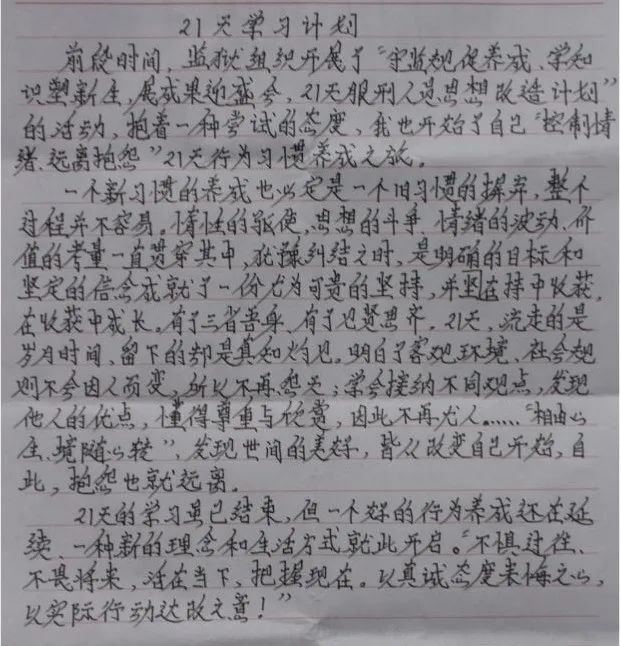 21天学习计划
前段时间，监狱组织开展了“守监规促养成、学知
识塑新生，展成果迎盛会，21天服刑人员思想改造计划”
的活动，抱着一种尝试的态度，我也开始了自己“控制情
绪、远离抱怨”21天行为习惯养成之旅。
一个新习惯的养成也必定是一个旧习惯的摒弃，整个
过程并不容易。惰性的驱使，思想的斗争、情绪的波动、价
值的考量一直贯穿其中，犹豫纠结之时，是明确的目标和
坚定的信念成就了一份尤为可贵的坚持，并坚在持中收获，
在收获中成长。有了三省吾身、有了见贤思齐。21天，流走的是
岁月时间、留下的却是真知灼见。明白了客观环境、社会规
则不会因人而变，所以不再怨天；学会接纳不同观点，发现
他人的优点，懂得尊重与欣赏，因此不再尤人……“相由心
生、境随心转”，发现世间的美好，皆从改变自己开始，自
此，抱怨也就远离。
21天的学习虽已结束，但一个好的行为养成还在延
续、一种新的理念和生活方式就此开启。“不惧过往、
不畏将来，活在当下，把握现在。以真诚态度来悔之心，
以实际行动达改之意！”